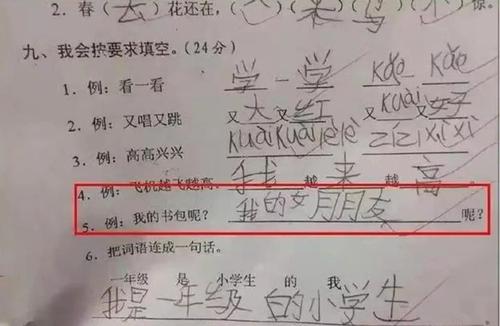 2. 春(去)花还在,(人)来(鸟)不惊。
九、我会按要求填空。(24分)
1. 例:看一看 学一学 kǎo kǎo
2. 例:又唱又跳 又大又红 又kuài又好
3. 例:高高兴兴 kuàikuàilèlè zǐzǐxìxì
4. 例:飞机越飞越高。 我越来越高
5. 例:我的书包呢? 我的女月月友呢?
6. 把词语连成一句话。
一年级 是 小学生 的 我
我是一年级的小学生